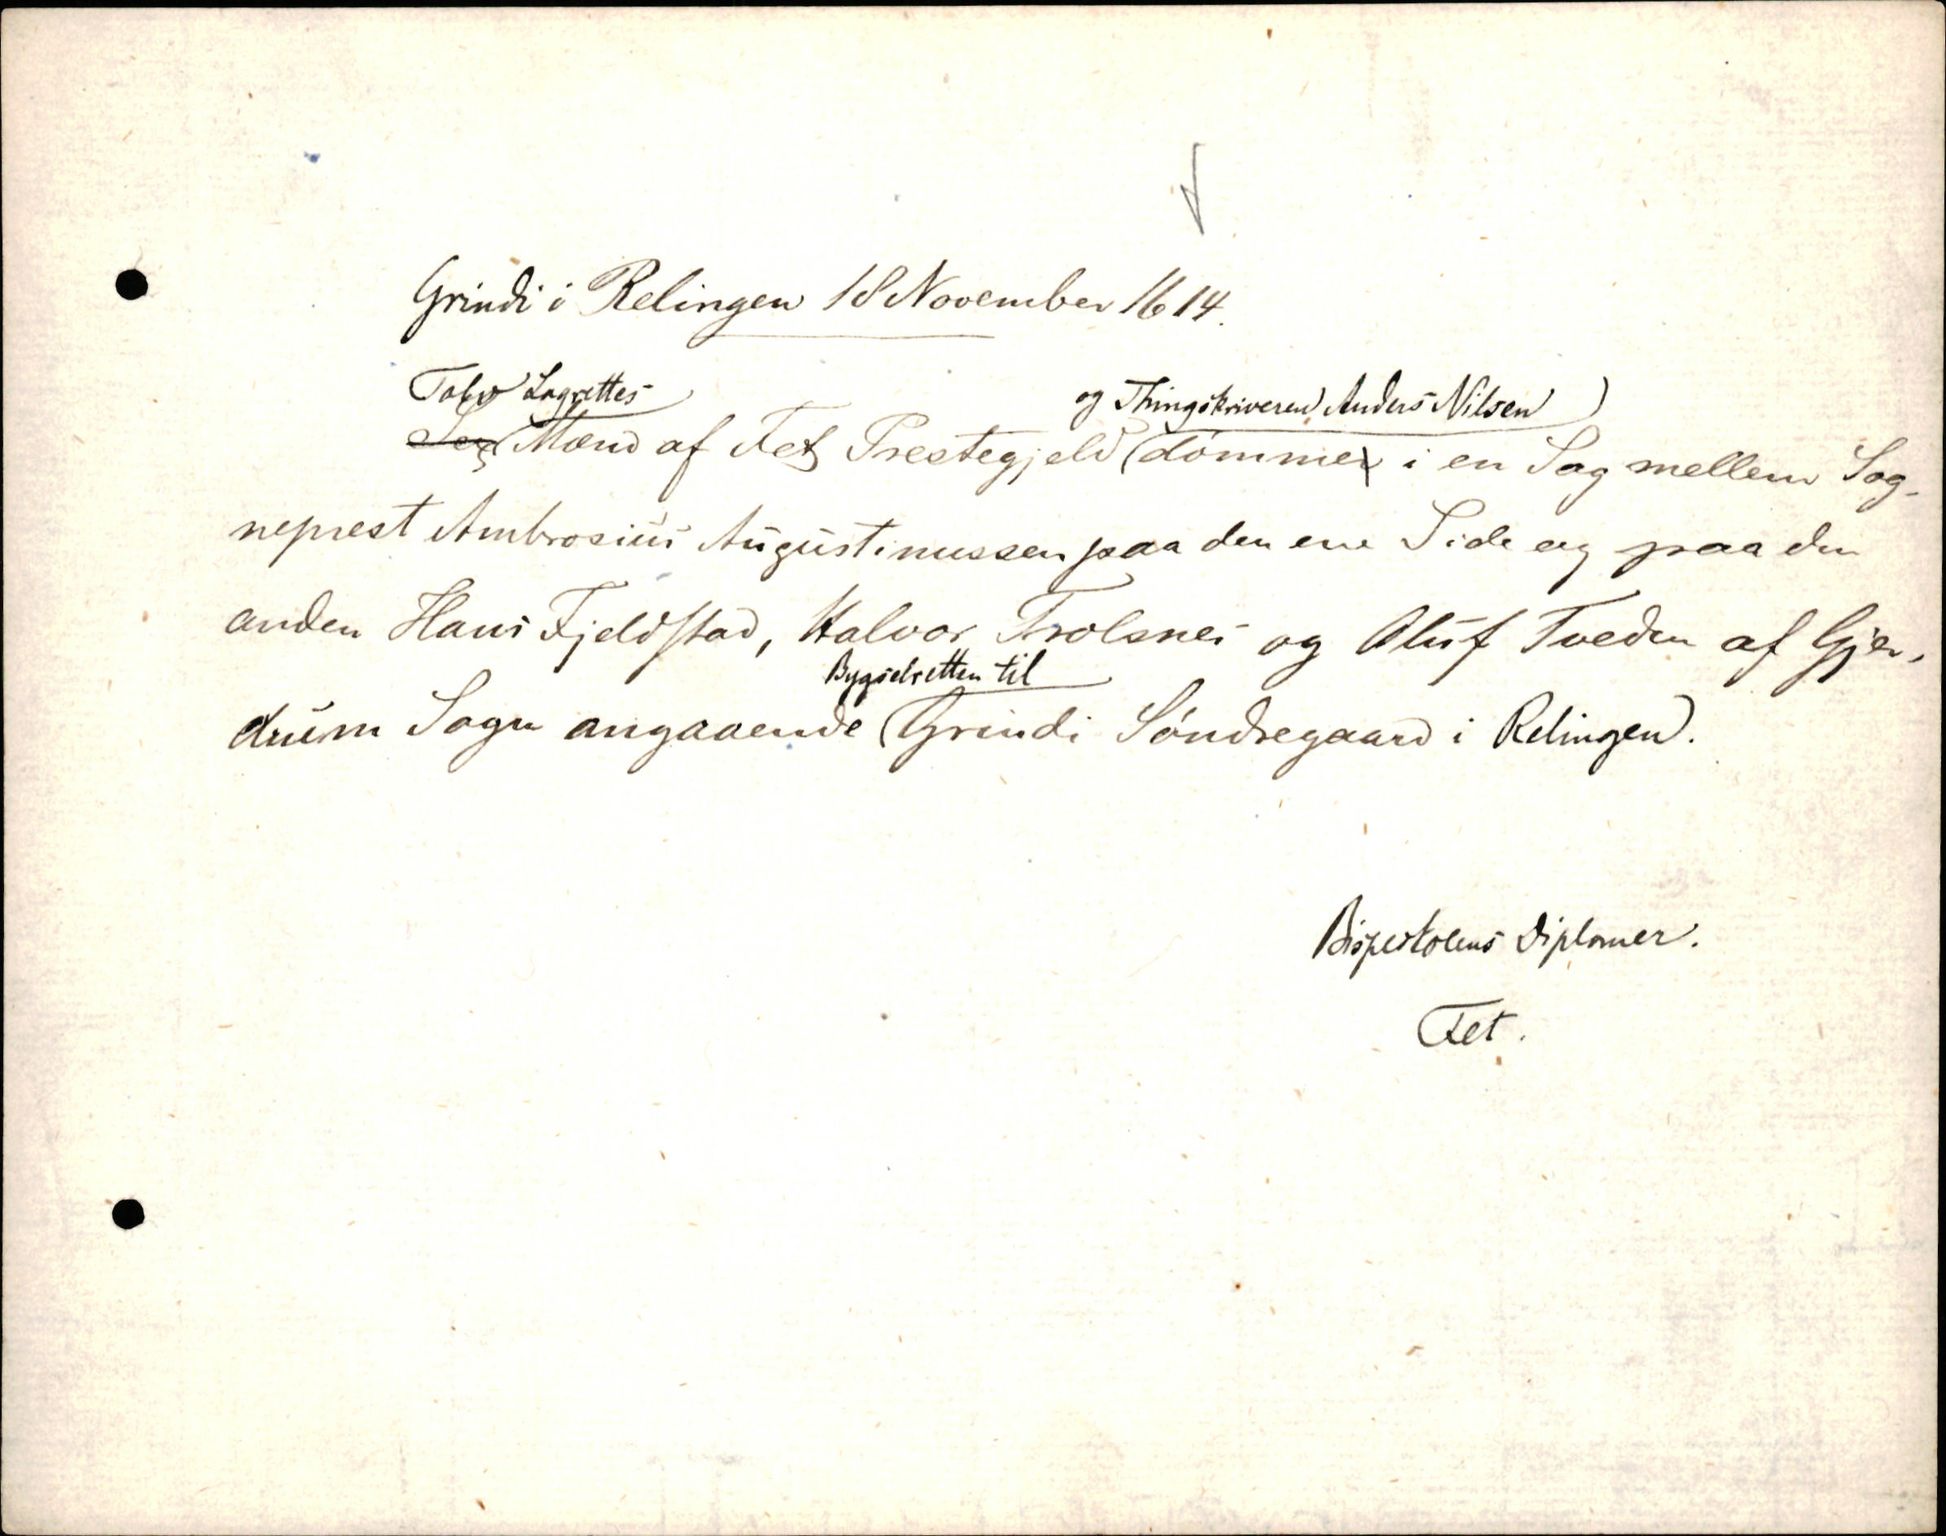 Grindi i Relingen 18 November 1614.
Tolv Lagrettes og Thingskriveren Anders Nilsen
Sex Mænd af Fet Prestegjeld dømmer i en Sag mellem Sog-
neprest Ambrosius Augustinussen paa den ene Side og paa den
anden Hans Fjeldstad, Halvor Trolsnes og Oluf Tveden af Gjer-
Bygselretten til
drum Sogn angaaende Grindi Søndregaard i Relingen.
Bispestolens Diplomer.
Fet.